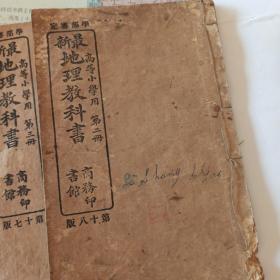 學部審定
最新地理教科書
高等小學用
第二冊
商務印書館
第十八版
學部審定
最新地理教科書
高等小學用
第三冊
商務印書館
第十七版